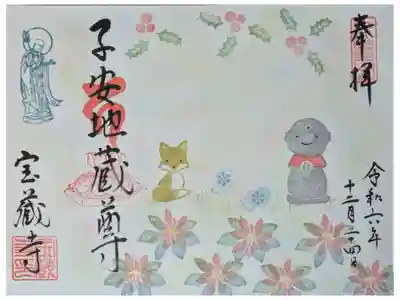 奉拝
令和六年
十二月二十四日
子安地蔵尊
宝蔵寺